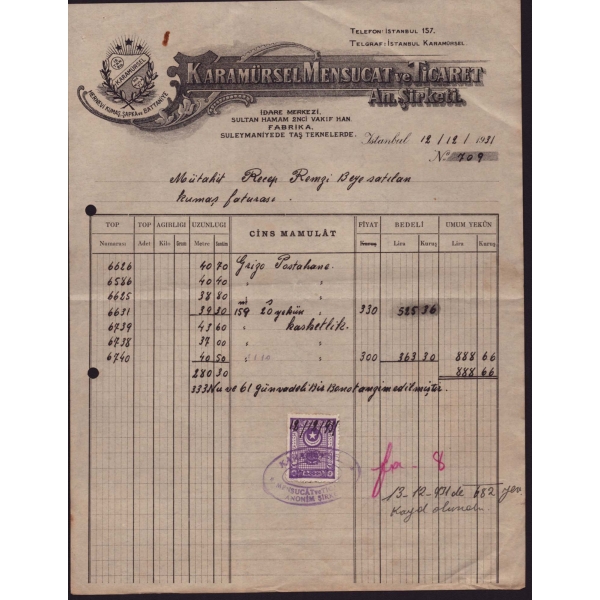 TELEFON: İSTANBUL 157.
TELGRAF: İSTANBUL KARAMÜRSEL
KARAMÜRSEL
HERNEVİ KUMAŞ, ŞAPKA ve BATTANİYE
KARAMÜRSEL MENSUCAT ve TİCARET
An. Şirketi.
İDARE MERKEZİ.
SULTAN HAMAM 2NCİ VAKIF HAN.
FABRİKA.
SULEYMANİYEDE TAŞ TEKNELERDE.
İstanbul 12/12/1931
No 709
Mütahit Recep Remzi Beye satılan
kumaş faturası.
TOP TOP AGIRLIGI UZUNLUGI CİNS MAMULÂT FİYAT BEDELİ UMUM YEKÛN
Numarası Adet Kilo Gram Metre Santim Lira Kuruş Lira Kuruş
6626 40 70 Grigo Postahane
6586 40 40 " "
6625 38 80 " "
6631 39 30 159 20 yekûn " 330 525 36
6739 43 60 " kasketlik
6738 37 00 " "
6740 40 50 " 300 363 30 888 66
280 30 888 66
333 Nu ve 61 gün vadeli Bir Bono tanzim edilmiştir.
12/12/931
KARAMÜRSEL
MENSUCAT ve
ANONİM ŞİRK
fa - 8
13-12-931 de 682 yev
Kayd olundu.